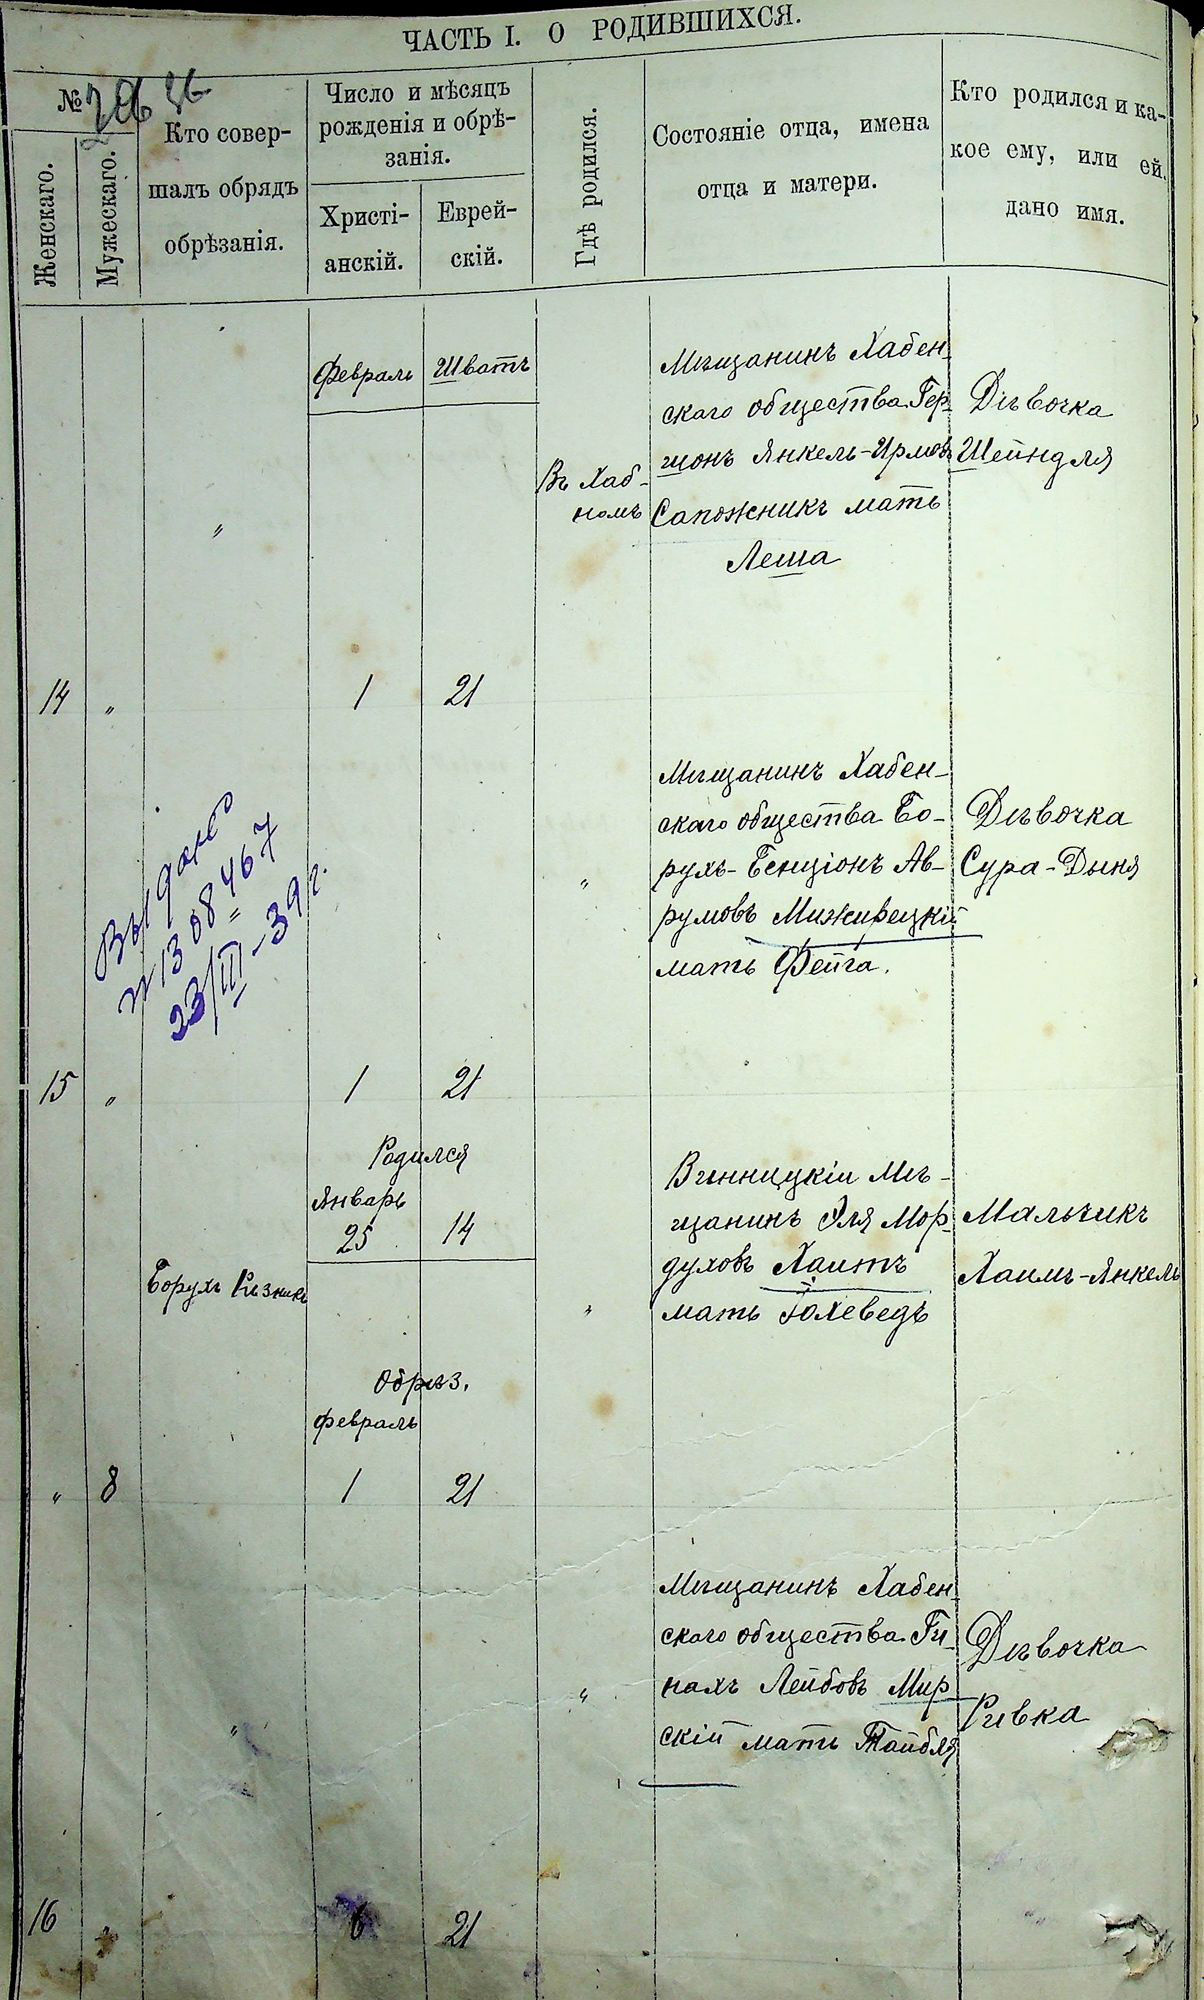 ЧАСТЬ I. О РОДИВШИХСЯ.
№
Женскаго.
Мужескаго.
Кто совер-
шалъ обрядъ
обрѣзанія.
Число и мѣсяцъ
рожденія и обрѣ-
занія.
Христі-
анскій.
Еврей-
скій.
Гдѣ родился.
Состояніе отца, имена
отца и матери.
Кто родился и ка-
кое ему, или ей,
дано имя.
Февраль Шватъ
Въ Хаб-
номъ
Мѣщанинъ Хабен-
скаго общества Гер-
шонъ Янкель-Ирмовъ
Сапожникъ мать
Леша
Дѣвочка
Шейндля
14 " 1 21
Мѣщанинъ Хабен-
скаго общества Бо-
рухъ-Бенціонъ Ав-
румовъ Мижирецкій
мать Фейга.
Дѣвочка
Сура-Дыня
Выдано
№ 1308467
23/III-39 г.
15 " 1 21
Родился
Январь
25 14
Борухъ Рѣзникъ
Обрѣз.
Февраль
" 8 1 21
Винницкій Мѣ-
щанинъ Эля Мор-
духовъ Хаитъ
мать Іохеведъ
Мальчикъ
Хаимъ-Янкель
Мѣщанинъ Хабен-
скаго общества Пи-
нахъ Лейбовъ Мир-
скій мать Тайбля
Дѣвочка
Ривка
16 " 6 21